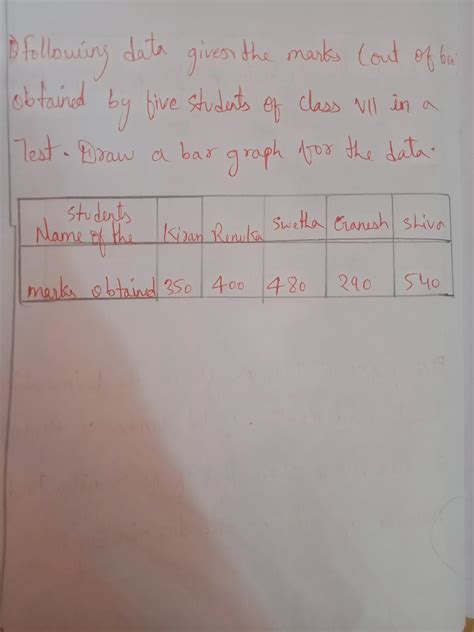 following data gives the marks (out of
obtained by five students of class VII in a
Test. Draw a bar graph for the data.
Students
Name of the Kiran Renuka Swetha Ganesh Shiva
marks obtained 350 400 480 290 540